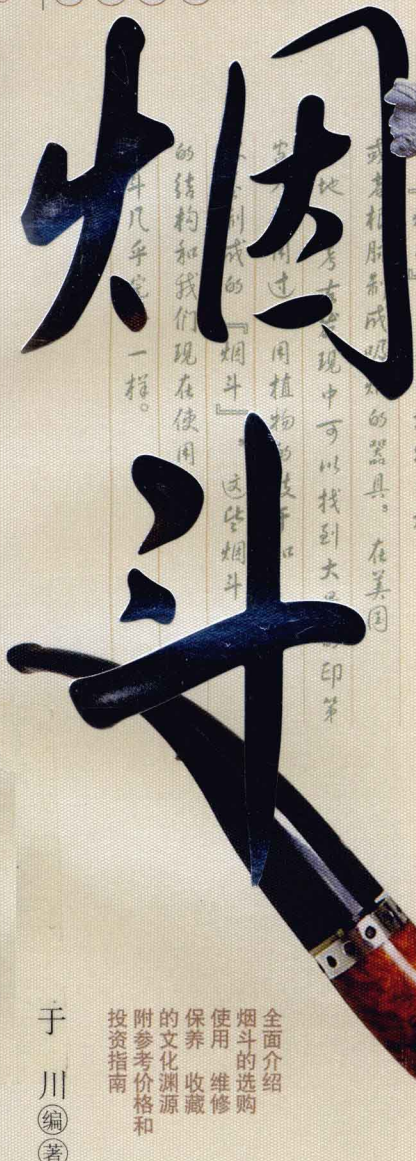 烟斗
制成吸烟的器具。在美国
地考古发现中可以找到大的印第
用过用植物的枝干
制成的『烟斗』。这些烟斗
的结构和我们现在使用
斗几乎完一样。
全面介绍
烟斗的选购
使用 维修
保养 收藏
的文化渊源
附参考价格和
投资指南
于川 编著